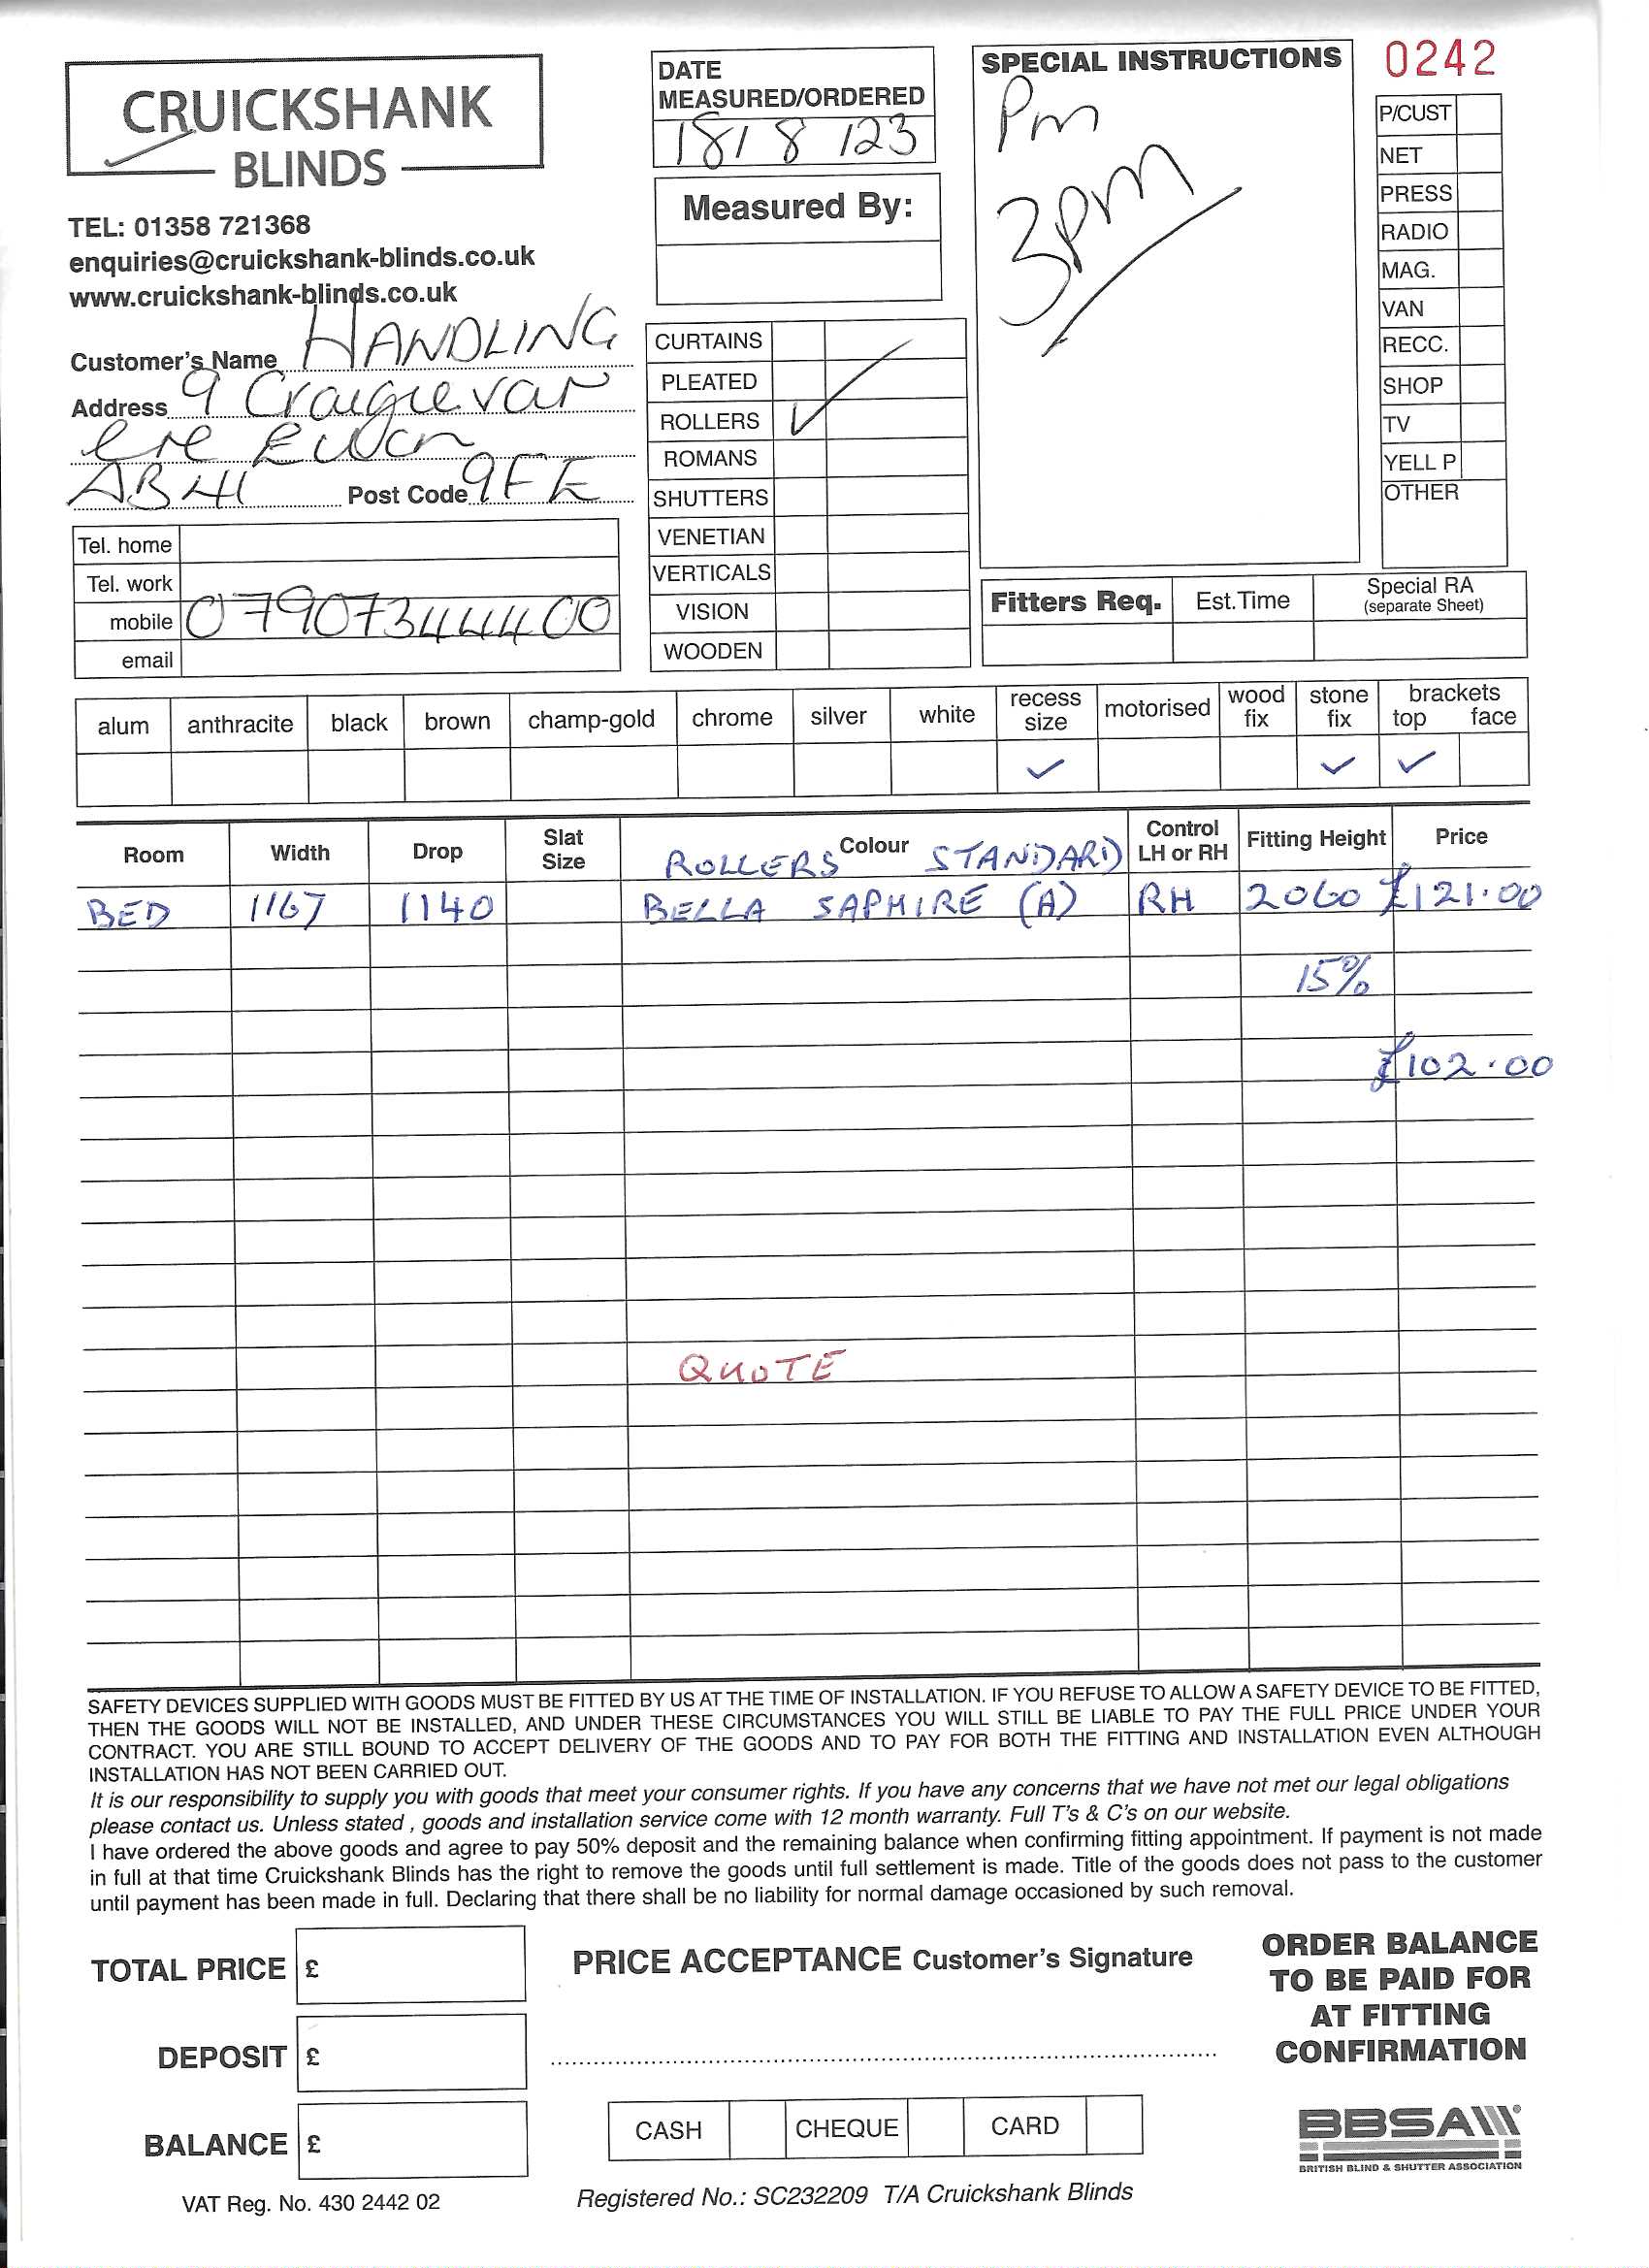 CRUICKSHANK
BLINDS
TEL: 01358 721368
enquiries@cruickshank-blinds.co.uk
www.cruickshank-blinds.co.uk
Customer's Name HANDLING
Address 9 Craigievar
cre Ellon
AB41 Post Code 9FE
Tel. home
Tel. work
mobile 07907344400
email
DATE
MEASURED/ORDERED
18/8/23
Measured By:
CURTAINS
PLEATED
ROLLERS ✓
ROMANS
SHUTTERS
VENETIAN
VERTICALS
VISION
WOODEN
SPECIAL INSTRUCTIONS
Pm
3pm
0242
P/CUST
NET
PRESS
RADIO
MAG.
VAN
RECC.
SHOP
TV
YELL P
OTHER
Fitters Req. Est.Time Special RA
(separate Sheet)
alum anthracite black brown champ-gold chrome silver white recess size motorised wood fix stone fix brackets top face
✓ ✓ ✓
Room Width Drop Slat Size Colour Control LH or RH Fitting Height Price
ROLLERS STANDARD
BED 1167 1140 BELLA SAPHIRE (A) RH 2060 £121.00
15%
£102.00
QUOTE
SAFETY DEVICES SUPPLIED WITH GOODS MUST BE FITTED BY US AT THE TIME OF INSTALLATION. IF YOU REFUSE TO ALLOW A SAFETY DEVICE TO BE FITTED,
THEN THE GOODS WILL NOT BE INSTALLED, AND UNDER THESE CIRCUMSTANCES YOU WILL STILL BE LIABLE TO PAY THE FULL PRICE UNDER YOUR
CONTRACT. YOU ARE STILL BOUND TO ACCEPT DELIVERY OF THE GOODS AND TO PAY FOR BOTH THE FITTING AND INSTALLATION EVEN ALTHOUGH
INSTALLATION HAS NOT BEEN CARRIED OUT.
It is our responsibility to supply you with goods that meet your consumer rights. If you have any concerns that we have not met our legal obligations
please contact us. Unless stated , goods and installation service come with 12 month warranty. Full T's & C's on our website.
I have ordered the above goods and agree to pay 50% deposit and the remaining balance when confirming fitting appointment. If payment is not made
in full at that time Cruickshank Blinds has the right to remove the goods until full settlement is made. Title of the goods does not pass to the customer
until payment has been made in full. Declaring that there shall be no liability for normal damage occasioned by such removal.
TOTAL PRICE £
DEPOSIT £
BALANCE £
VAT Reg. No. 430 2442 02
PRICE ACCEPTANCE Customer's Signature
CASH CHEQUE CARD
Registered No.: SC232209 T/A Cruickshank Blinds
ORDER BALANCE
TO BE PAID FOR
AT FITTING
CONFIRMATION
BBSA
BRITISH BLIND & SHUTTER ASSOCIATION